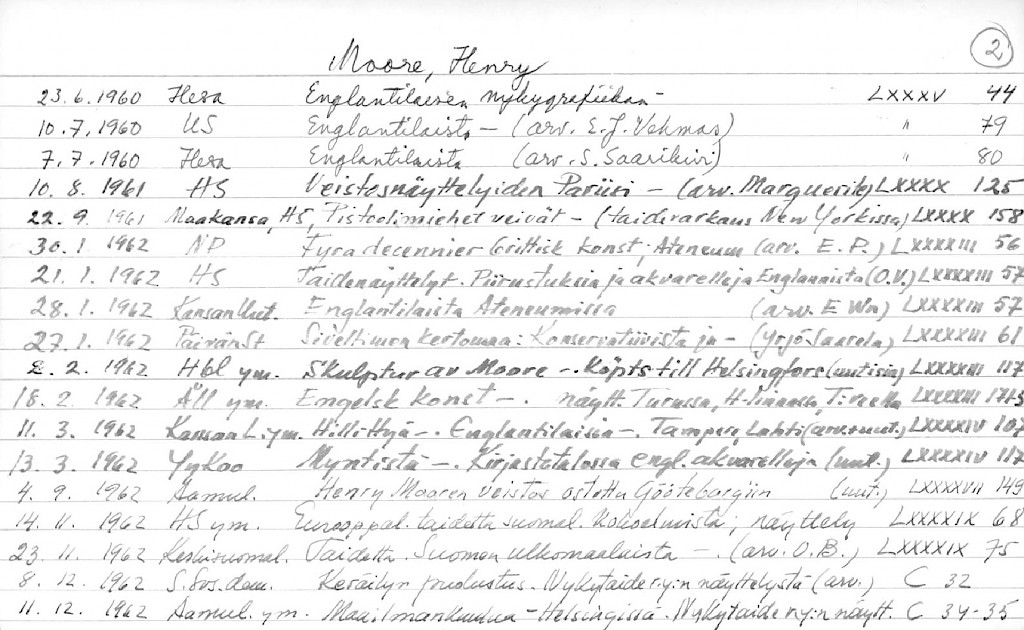 2
Moore, Henry
23.6.1960 Hesa Englantilaisen nykygrafiikan - LXXXV 44
10.7.1960 US Englantilaista - (arv. E.J. Vehmas) " 79
7.7.1960 Hesa Englantilaista (arv. S. Saarikivi) " 80
10.8.1961 HS Veistosnäyttelyiden Pariisi - (arv. Marguerite) LXXXX 125
22.9.1961 Maakansa, HS, Pistoolimiehet veivät - (taidevarkaus New Yorkissa) LXXXX 158
30.1.1962 NP Fyra decennier brittisk konst; Ateneum (arv. E.P.) LXXXXIII 56
21.1.1962 HS Taidenäyttelyt. Piirustuksia ja akvarelleja Englannista (O.V.) LXXXXIII 57
28.1.1962 KansanUut. Englantilaista Ateneumissa (arv. E Wn) LXXXXIII 57
27.1.1962 PäivänSt Siveltimen kertomaa: Konservatiivista ja - (Yrjö Saarela) LXXXXIII 61
2.2.1962 Hbl ym. Skulptur av Moore -. Köpts till Helsingfors (uutisia) LXXXXIII 117
18.2.1962 Åll ym. Engelsk konst -. näytt. Turussa, H-linnassa, T:reella LXXXXIII 171-3
11.3.1962 Kansan L. ym. Hillittyä -. Englantilaisia -. Tampere, Lahti (arv.+uut.) LXXXXIV 107
13.3.1962 YyKoo Myntistä -. Kirjastotalossa engl. akvarelleja (uut.) LXXXXIV 117
4.9.1962 Aamul. Henry Mooren veistos ostettu Göötebargiin (uut.) LXXXXVII 149
14.11.1962 HS ym. Eurooppal. taidetta suomal. kokoelmista; näyttely LXXXXIX 68
23.11.1962 Keskisuomal. Taidetta. Suomen ulkomaalaista -. (arv. O.B.) LXXXXIX 75
8.12.1962 S.Sos.dem. Keräilyn puolustus. Nykytaide ry:n näyttelystä (arv.) C 32
11.12.1962 Aamul. ym. Maailmankuulua - Helsingissä. Nykytaide ry:n näytt. C 34-35